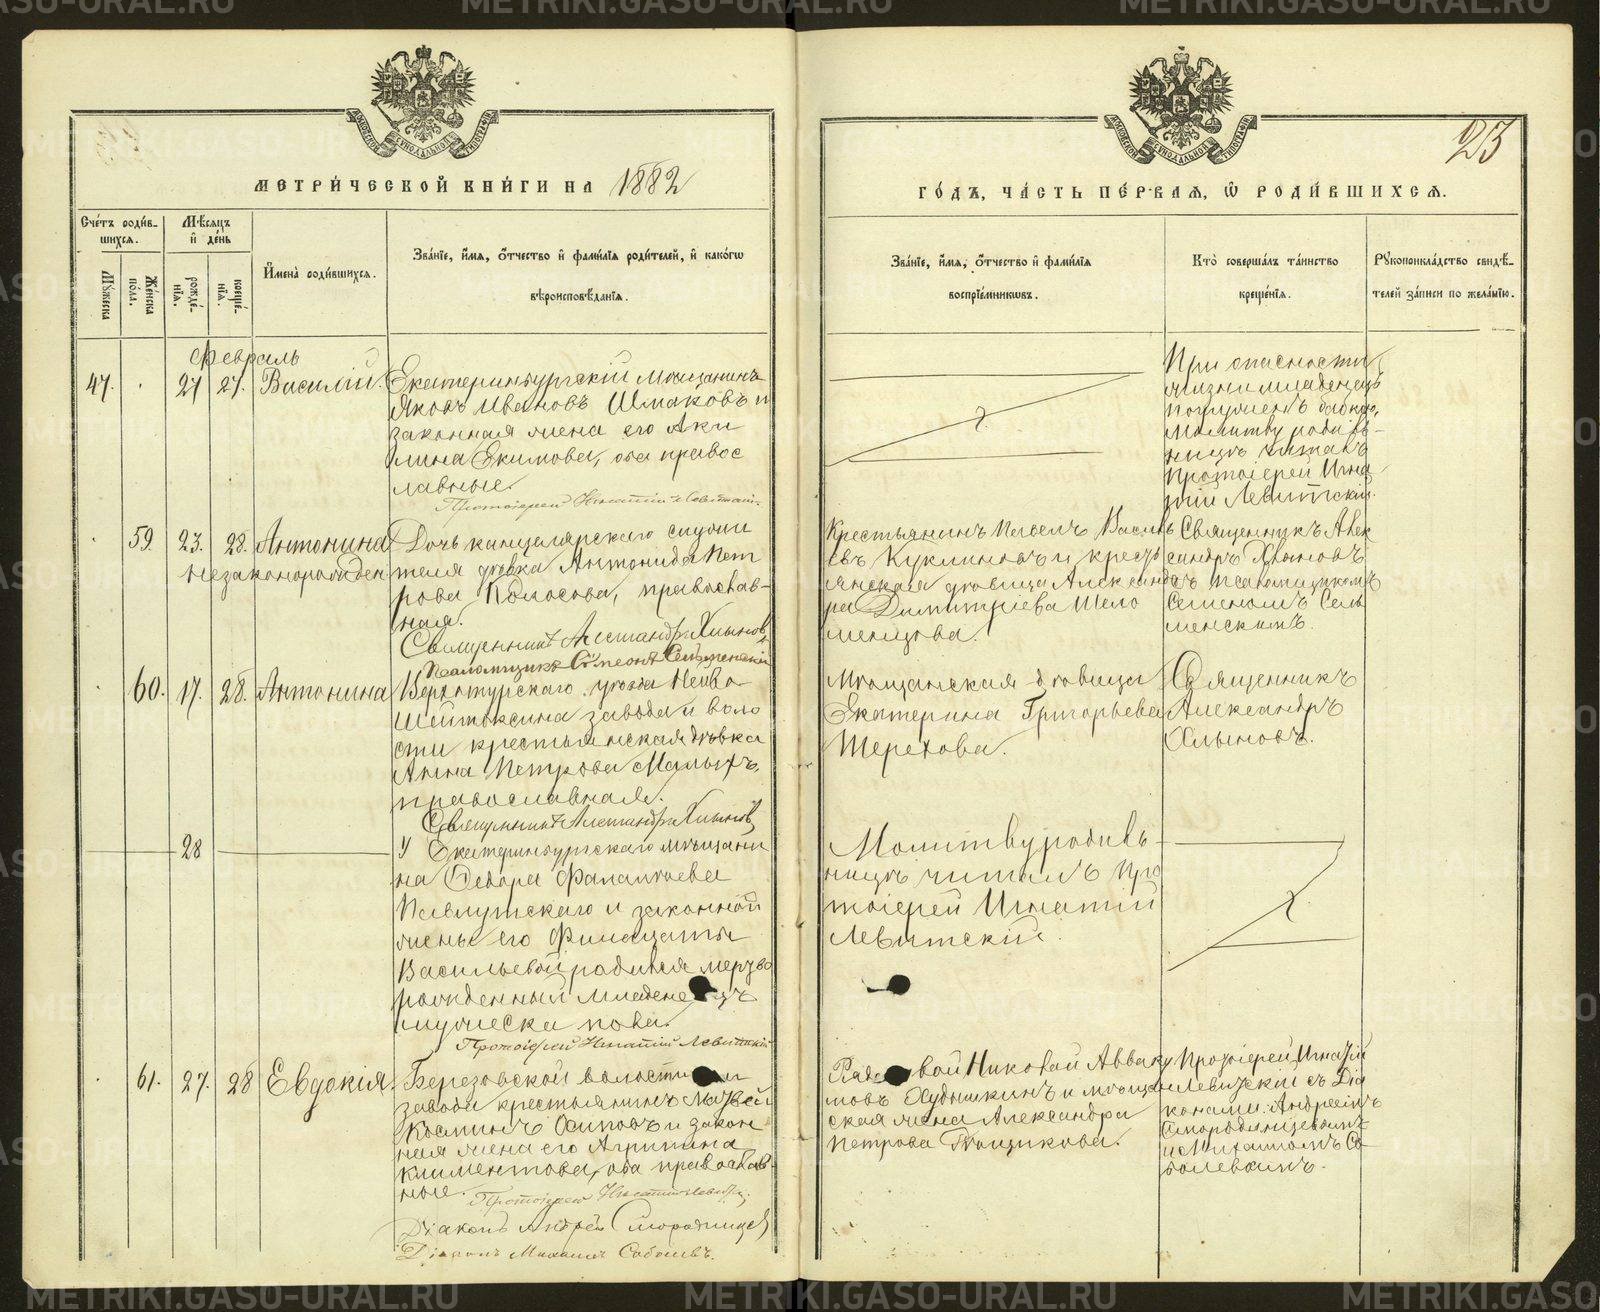 METRIKI.GASO-URAL.RU
МЕТРИ́ЧЕСКОЙ КНИ́ГИ НА 1882
ГО́ДЪ, ЧА́СТЬ ПЕ́РВАЯ, Ѡ РОДИ́ВШИХСЯ.
123
Сче́тъ роди́в-
шихся.
Мѣ́сяцъ
и҆ де́нь
Мꙋ́жеска
Же́нска
по́ла.
рожде́-
нїѧ.
креще́-
нїѧ.
И҆мена̀ роди́вшихся.
Зва́нїе, и҆́мя, ѻ҆́тчество и҆ фами́лїя роди́телей, и҆ како́гѡ
вѣроисповѣ́данїя.
Зва́нїе, и҆́мя, ѻ҆́тчество и҆ фами́лїя
воспрїе́мникѡвъ.
Кто̀ соверша́лъ та́инство
креще́нїя.
Рꙋкоприкла́дство свидѣ́-
телей за́писи по жела́нїю.
Февраль
47.
27
27.
Василій.
Екатеринбургскій мѣщанинъ
Яковъ Ивановъ Шмаковъ и
законная жена его Аки
лина Екимова, оба правос
лавные.
Протоіерей Игнатій Левитскій.
При опасности
жизни младенецъ
погружен бабкою,
Молитву родив-
ницѣ читалъ
Протоіерей Игна
тій Левитскій.
59.
23.
28.
Антонина
незаконорожден
Дочь канцелярскаго служи
теля дѣвка Антонида Пет
рова Колосова, православ-
ная.
Священникъ Александръ Хлыновъ
Псаломщикъ Симеонъ Сельменскій
Крестьянинъ Павелъ Василь
евъ Куклиновъ и кресть
янская дѣвица Александ
ра Димитріева Шело
менцова.
Священникъ Алек
сандръ Хлыновъ
съ псаломщикомъ
Семеномъ Сель
менскимъ.
60.
17.
28.
Антонина
Верхотурскаго уѣзда Нейво-
Шайтанскаго завода и воло
сти крестьянская дѣвка
Анна Петрова Малыхъ,
православная.
Священникъ Александръ Хлыновъ
Мѣщанская дѣвица
Екатерина Григорьева
Терехова.
Священникъ
Александръ
Хлыновъ.
28
У Екатеринбургскаго мѣщани
на Ѳедора Фалалѣева
Павлутскаго и законной
жены его Филицаты
Васильевой родился мертво
рожденный младенецъ
мужеска пола.
Протоіерей Игнатій Левитскій
Молитву родив-
ницѣ читалъ Про
тоіерей Игнатій
Левитскій.
61.
27.
28
Евдокія
Березовской волости и
завода крестьянинъ Матвей
Косминъ Осиповъ и закон
ная жена его Агрипина
Климентова, оба православ-
ные.
Протоіерей Игнатій Левитскій
Діаконъ Андрей Смородинцевъ
Діаконъ Михаилъ Соболевъ.
Рядовой Николай Авваку
мовъ Худышкинъ и мѣщан
ская жена Александра
Петрова Тощикова.
Протоіерей Игнатій
Левитскій съ Діа
конами: Андреемъ
Смородинцевымъ
и Михаиломъ Со
болевымъ.